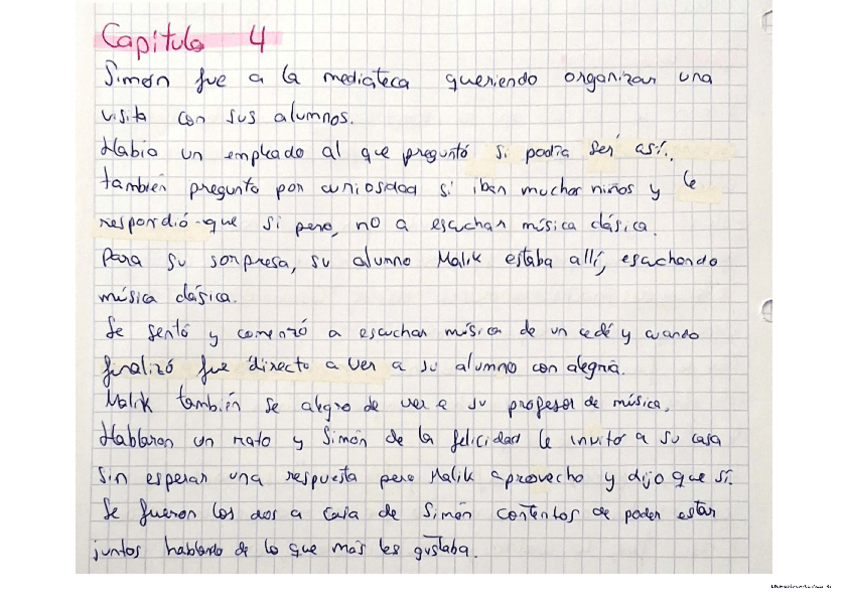 Capítulo 4
Simón fue a la mediateca queriendo organizar una
visita con sus alumnos.
Había un empleado al que preguntó si podía ser así.
también pregunto por curiosidad si iban muchos niños y le
respondió que si pero, no a escuchar música clásica.
Para su sorpresa, su alumno Malik estaba allí, escuchando
música clásica.
Se sentó y comenzó a escuchar música de un cedé y cuando
finalizó fue directo a ver a su alumno con alegría.
Malik también se alegro de ver a su profesor de música.
Hablaron un rato y Simón de la felicidad le invitó a su casa
sin esperar una respuesta pero Malik aprovecho y dijo que sí.
Se fueron los dos a casa de Simón contentos de poder estar
juntos hablando de lo que más les gustaba.